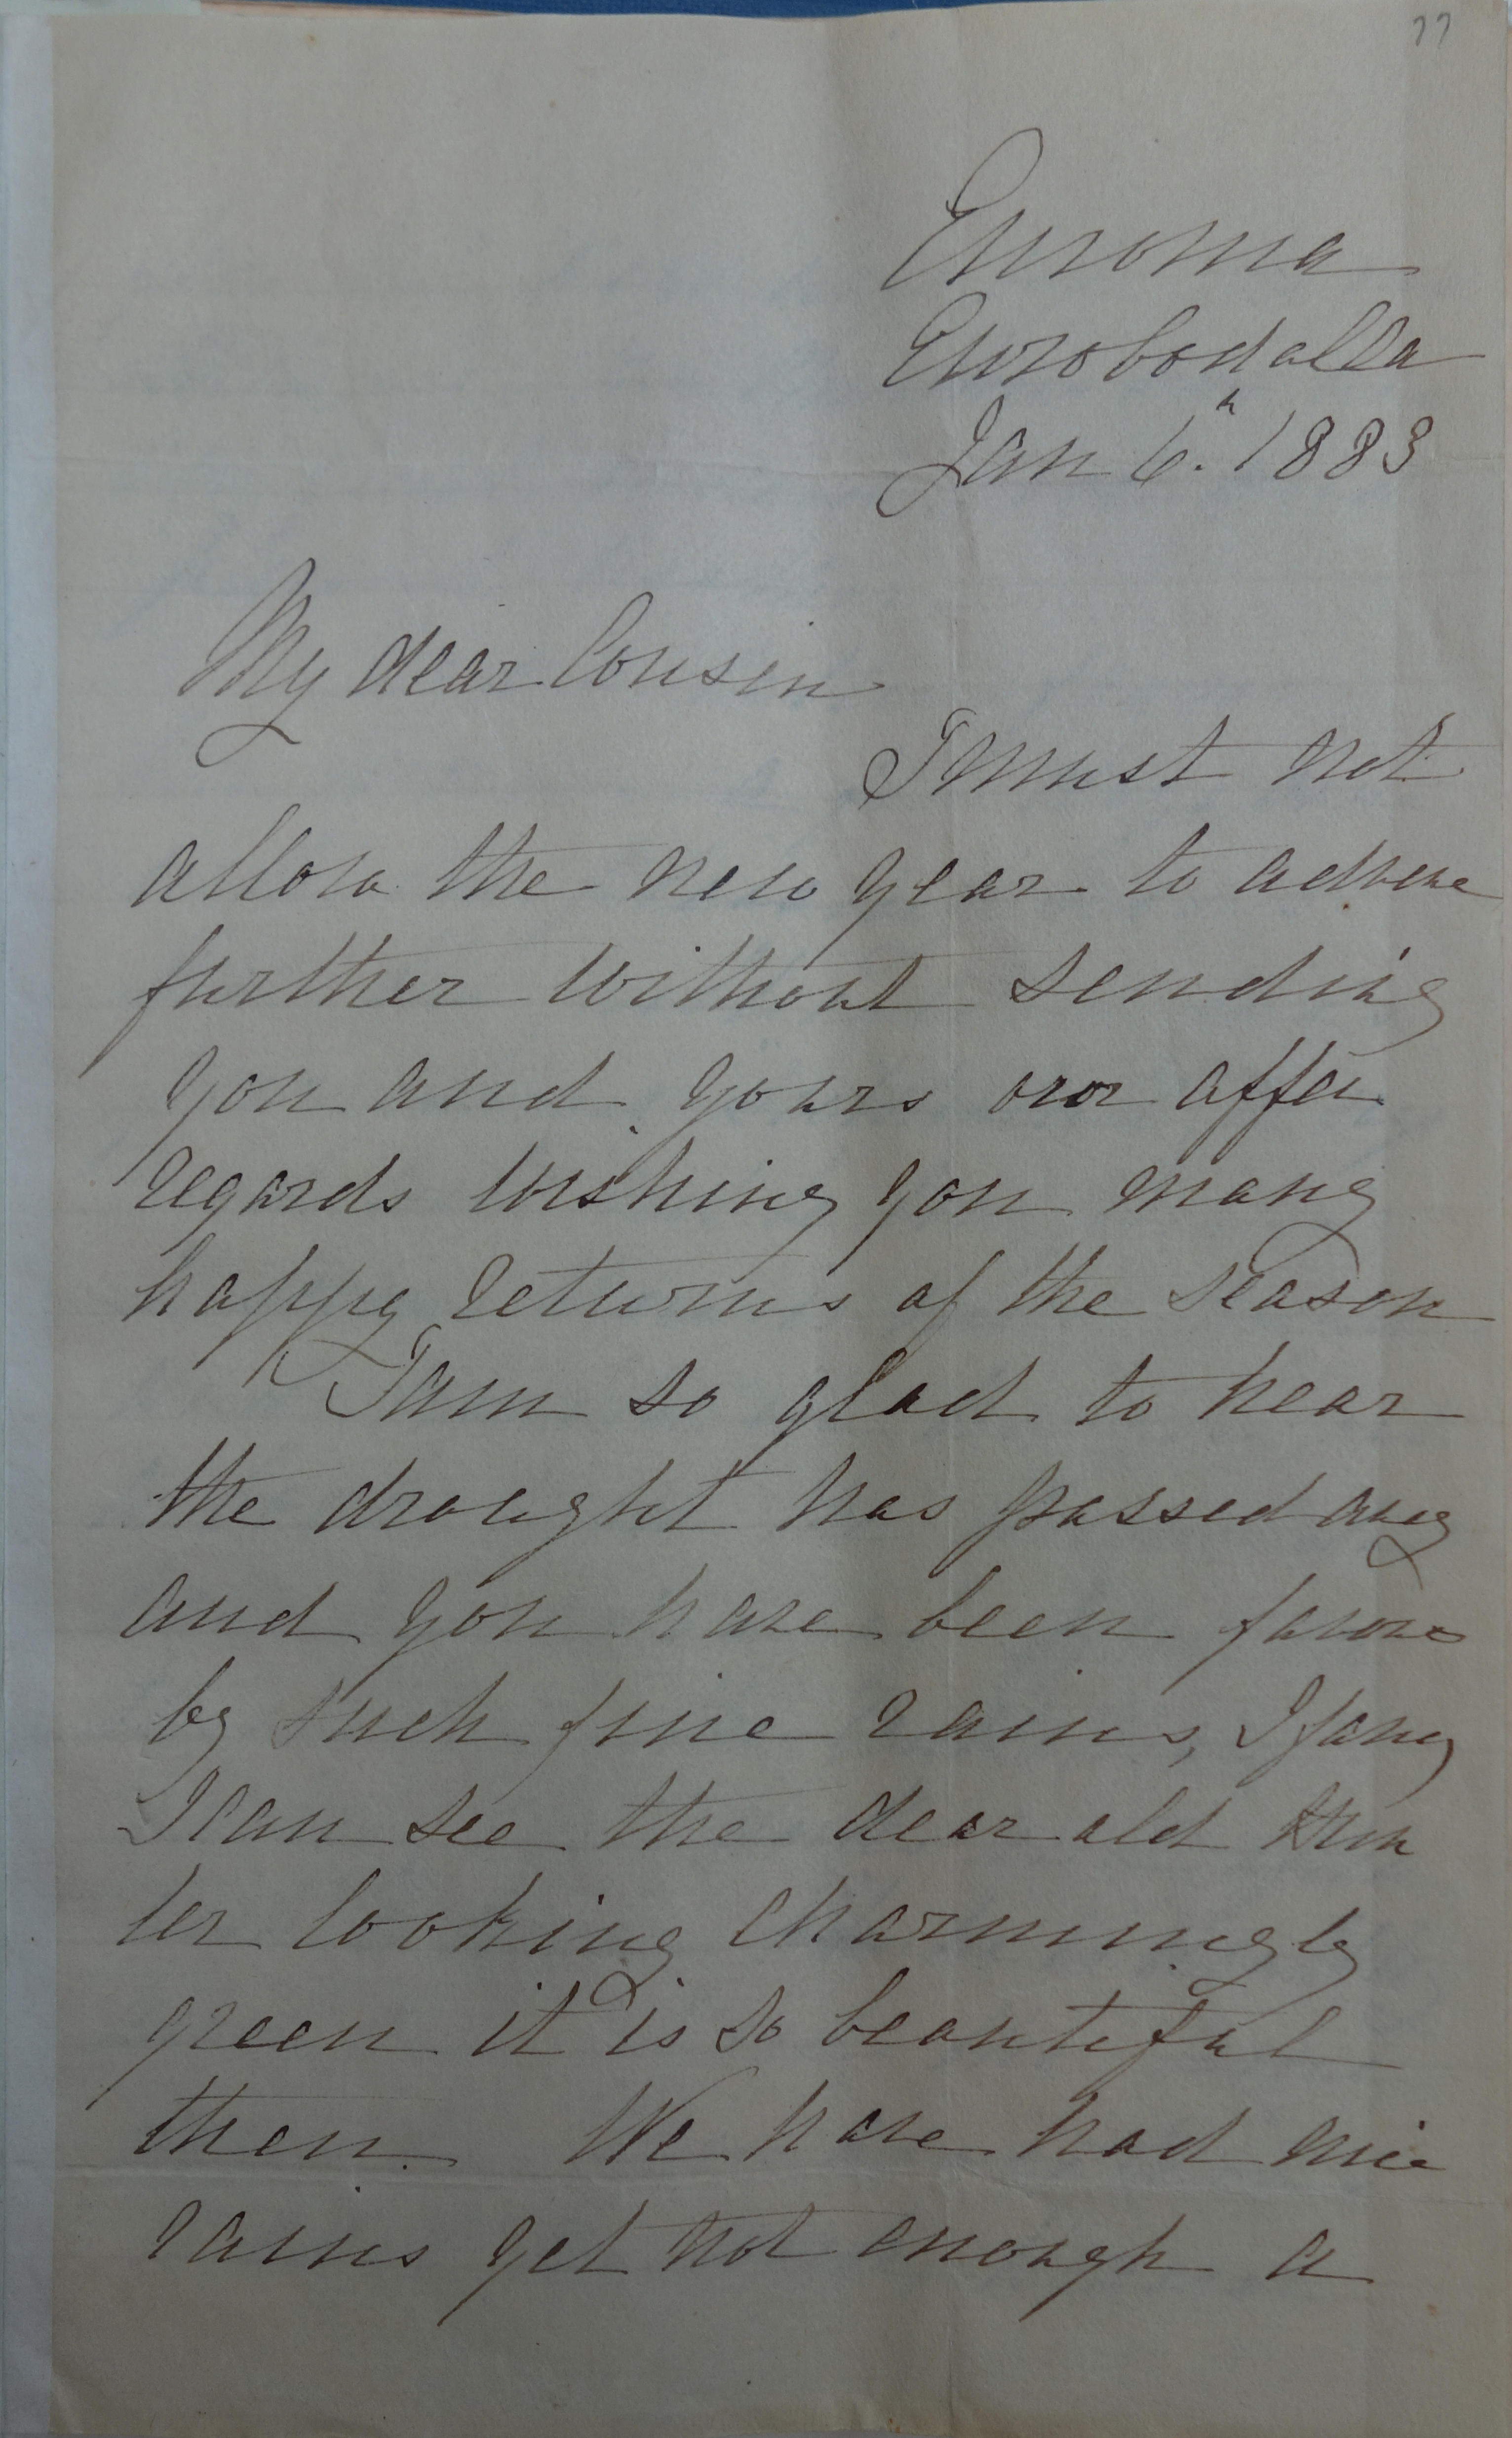 77
Euroma
Eurobodalla
Jan 6.h 1883
My dear Cousin
I must not
allow the new year to advance
further without sending
you and yours our affec
regards wishing you many
happy returns of the season
I am so glad to hear
the drought has passed away
and you have been
by such fine rains, I fancy
I can see the dear old Hun
ter looking charmingly
green it is so beautiful
then. We have had nice
rains yet not enough a